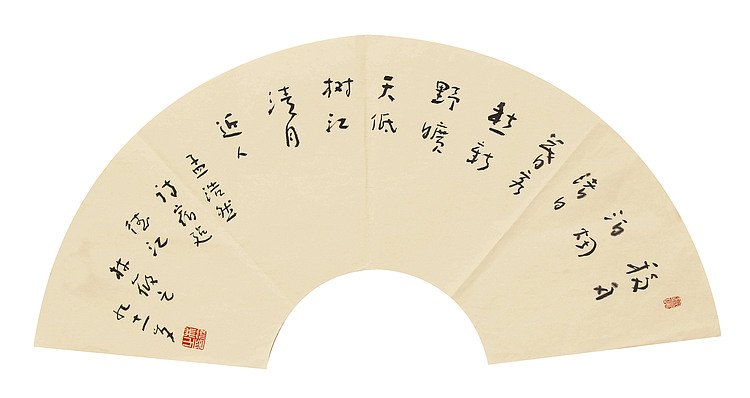 移舟
泊烟
渚日
暮客
愁新
野曠
天低
树江
清月
近人
孟浩然
诗宿建
德江
林散之
九十一